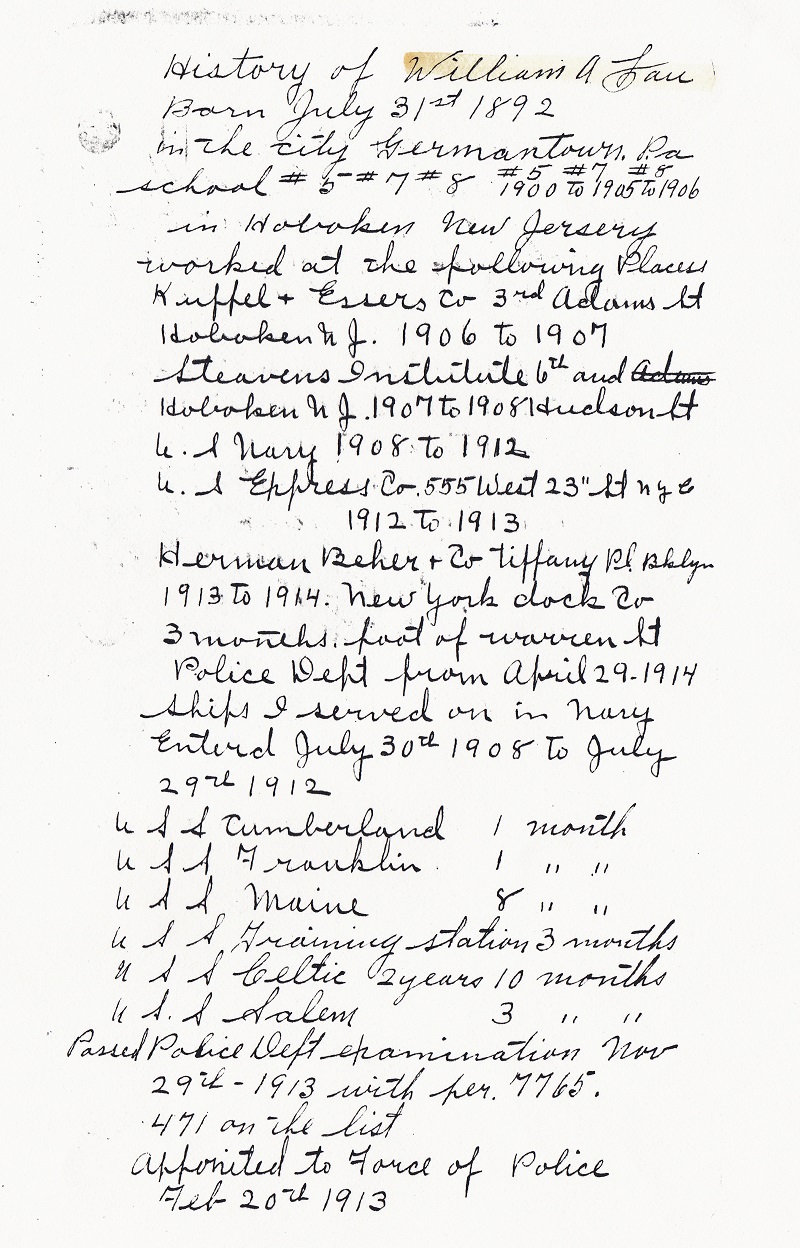 History of William A Lau
Born July 31st 1892
in the city Germantown. Pa
#5 #7 #8
school #5 #7 #8 1900 to 1905 to 1906
in Hoboken New Jersery
worked at the following Places
Kuffel + Essers Co 3rd Adams St
Hoboken N J. 1906 to 1907
Steavens Institute 6th and Adams
Hoboken N J. 1907 to 1908 Hudson St
U. S Navy 1908 to 1912
U. S Express Co. 555 West 23" St N Y C
1912 to 1913
Herman Beher + Co Tiffany Pl. Bklyn
1913 to 1914. New York dock Co
3 months. foot of warren St
Police Dept from April 29-1914
Ships I served on in Navy
Enterd July 30th 1908 to July
29th 1912
U S S Cumberland 1 month
U S S Franklin 1 " "
U S S Maine 8 " "
U S S Training station 3 months
U S S Celtic 2 years 10 months
U S. S Salem 3 " "
Passed Police Dept examination Nov
29th - 1913 with per. 7765.
471 on the list
Appointed to Force of Police
Feb 20th 1913